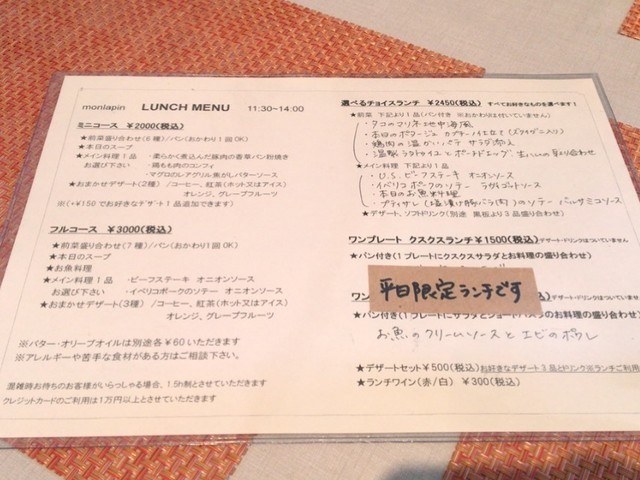 monlapin LUNCH MENU 11:30~14:00
ミニコース ¥2000(税込)
★前菜盛り合わせ(6種)/パン(おかわり1回OK)
★本日のスープ
★メイン料理 1品 ・柔らかく煮込んだ豚肉の香草パン粉焼き
お選び下さい ・鶏もも肉のコンフィ
・マグロのレアグリル 焦がしバターソース
★おまかせデザート(2種) /コーヒー、紅茶(ホット又はアイス)
オレンジ、グレープフルーツ
※(+¥150でお好きなデザート1品追加できます)
フルコース ¥3000(税込)
★前菜盛り合わせ(7種)/パン(おかわり1回OK)
★本日のスープ
★お魚料理
★メイン料理 1品 ・ビーフステーキ オニオンソース
お選び下さい ・イベリコポークのソテー オニオンソース
★おまかせデザート(3種) /コーヒー、紅茶(ホット又はアイス)
オレンジ、グレープフルーツ
※バター・オリーブオイルは別途各¥60いただきます
※アレルギーや苦手な食材がある方はご相談下さい。
混雑時お待ちのお客様がいらっしゃる場合、1.5h制とさせていただきます
クレジットカードのご利用は1万円以上とさせていただきます
選べるチョイスランチ ¥2450(税込) すべてお好きなものを選べます!
★前菜 下記より1品(パン付き ※おかわりは付いていません)
・タコのマリネ 地中海風
・本日のポタージュ カプチーノ仕立て(ズワイガニ入り)
・鶏肉の温かいパテ サラダ添え
・温製ラタトゥイユとポーチドエッグ 生ハムの取り合わせ
★メイン料理 下記より1品
・U.S.ビーフステーキ オニオンソース
・イベリコポークのソテー ラヴィゴットソース
・本日のお魚料理
・プティサレ(塩漬け豚バラ肉)のソテー バルサミコソース
★デザート、ソフトドリンク(別途 黒板より3品盛り合わせ)
ワンプレート クスクスランチ ¥1500(税込) デザート・ドリンクはついていません
★パン付き(1プレートにクスクスサラダとお料理の盛り合わせ)
平日限定ランチです
ワン
(税込) デザート・ドリンクはついていません
★パン付き(1プレートにサラダとショートパスタのお料理の盛り合わせ)
お魚のクリームソースとエビのポワレ
★デザートセット ¥500(税込) お好きなデザート3品とドリンク※ランチご利用
★ランチワイン(赤/白) ¥300(税込)